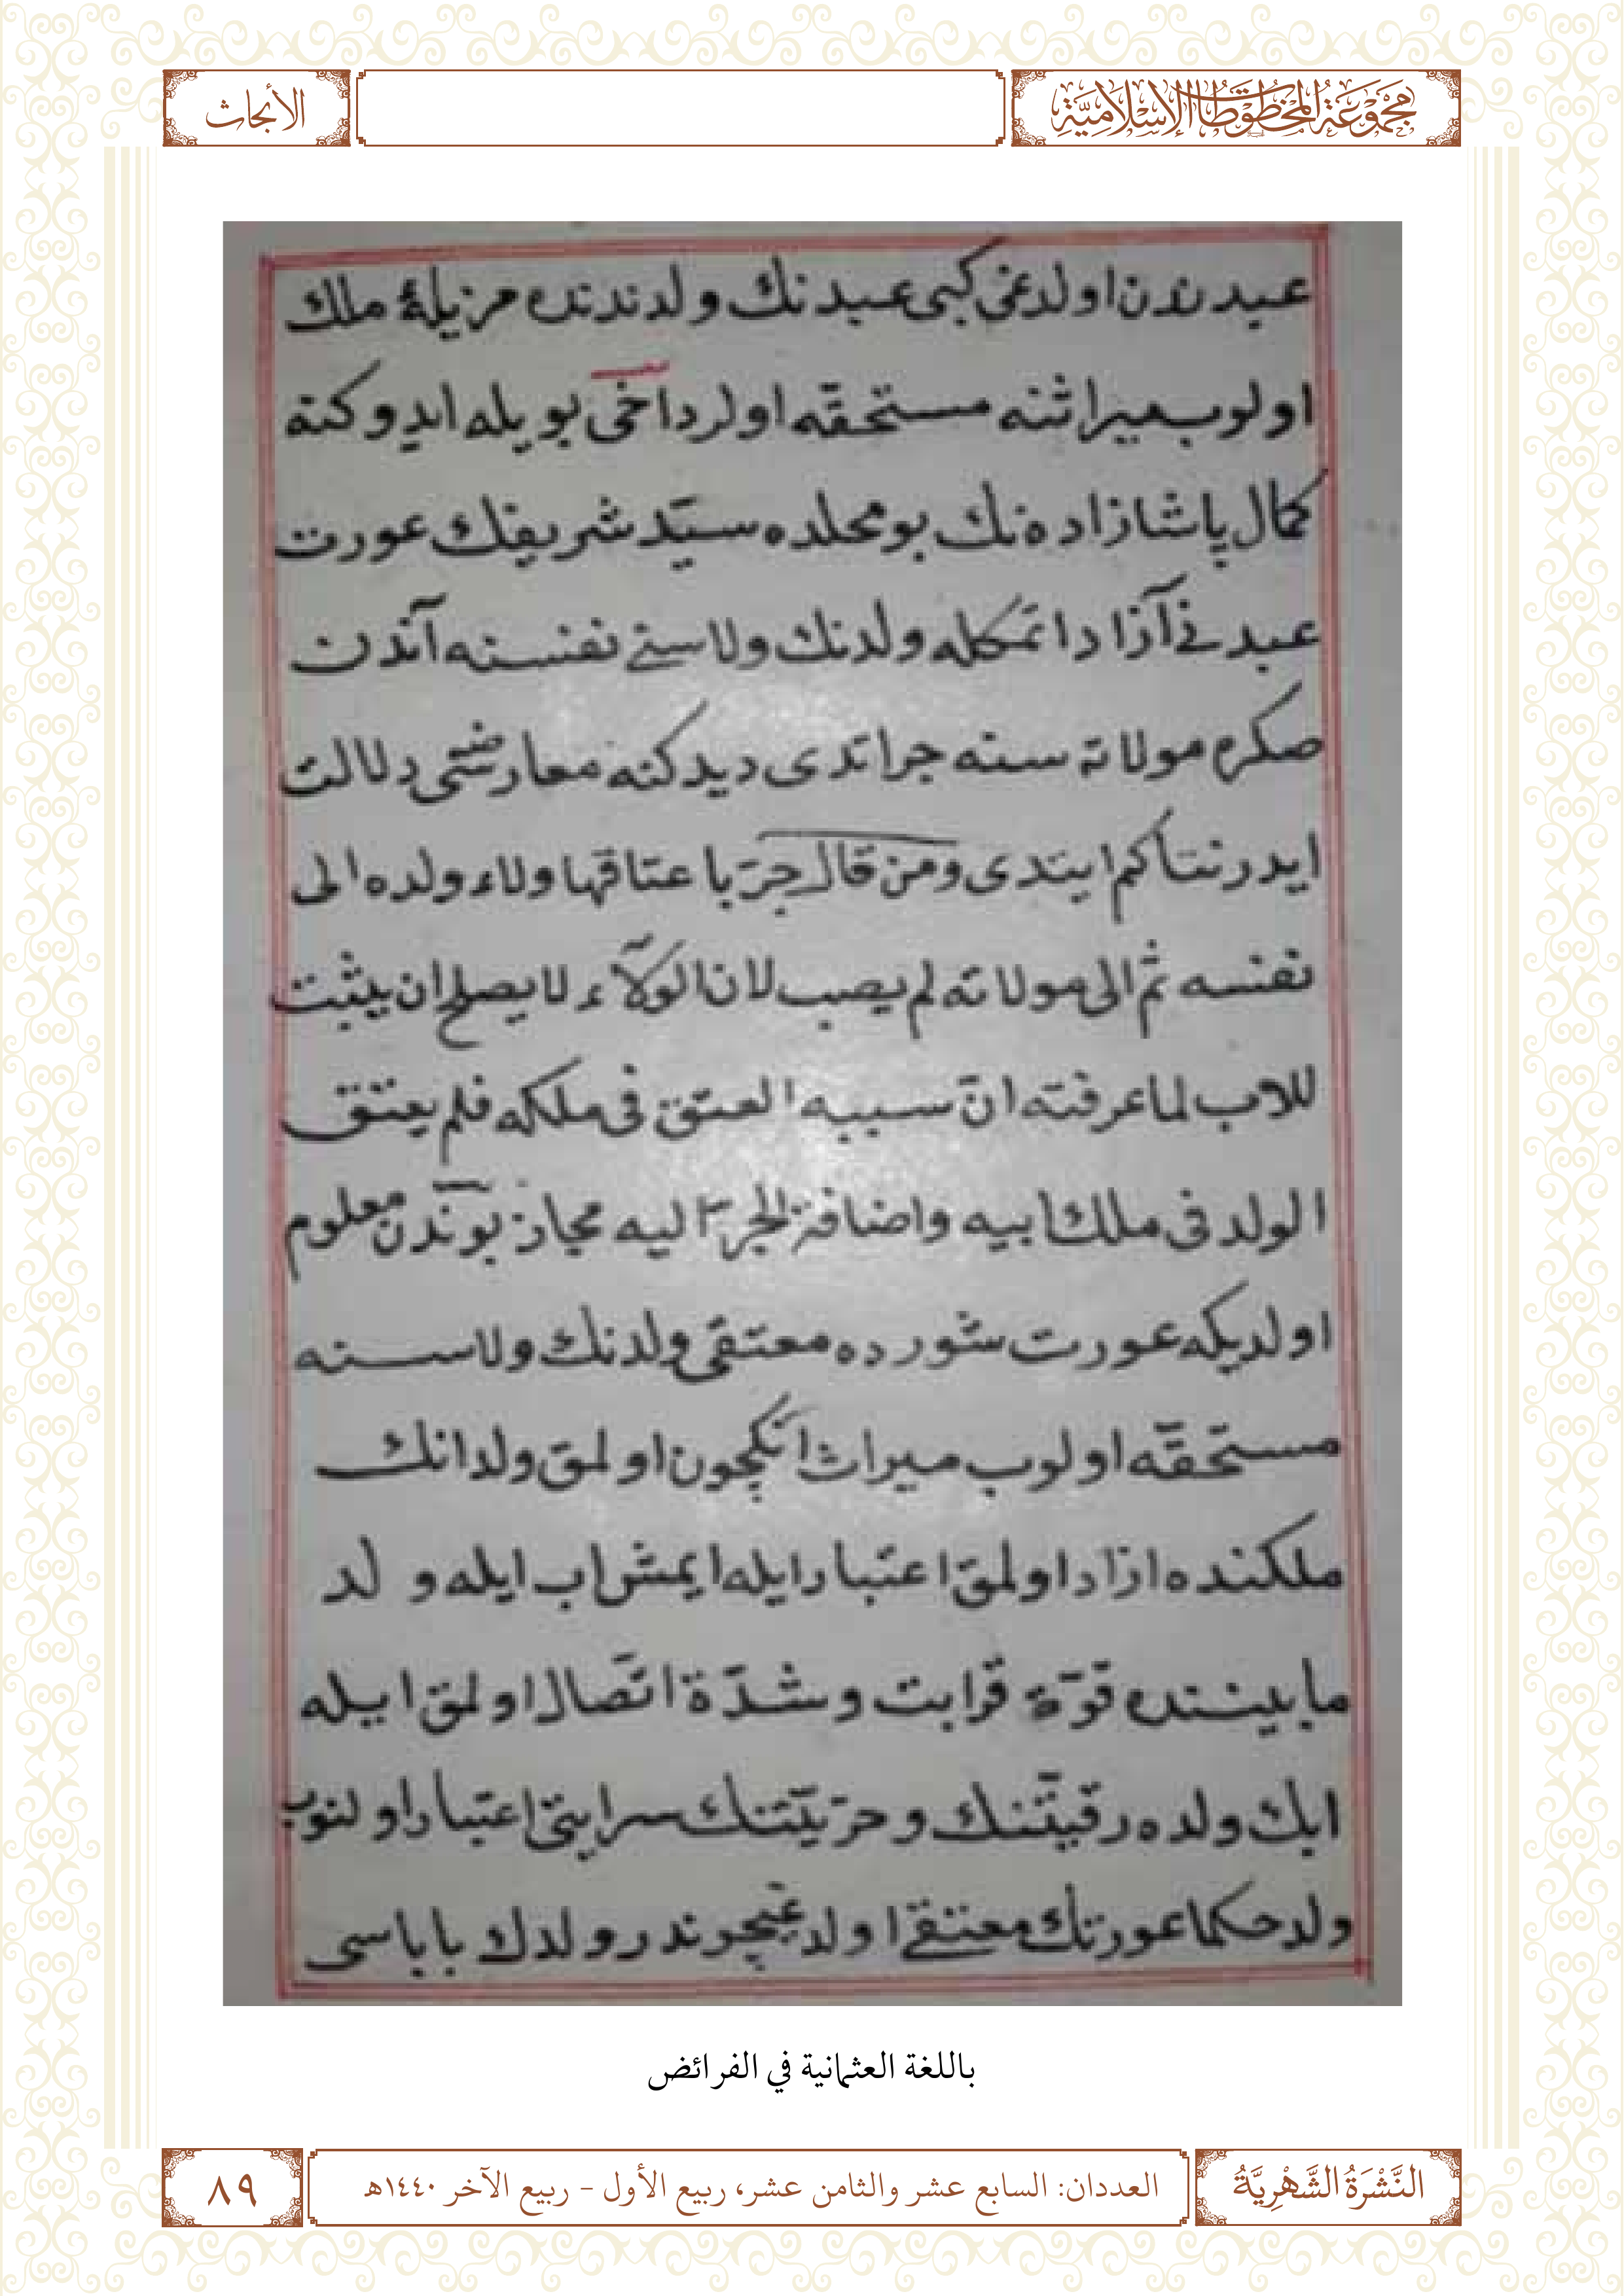 مَجْمُوعَةُ المَخْطُوطَاتِ الإِسْلَامِيَّةِ
الأبحاث
عبدندن اولدغى كبى عبدنك ولدندنده مزيلۀ ملك
اولوب ميراثنه مستحقّه اولر داخى بويله ايدوكنه
كمال پاشازاده نك بو محلده سيّد شريفك عورت
عبدنى آزاد اتمكله ولدنك ولاسنى نفسنه آندن
صكره مولاته سنه جر اتدى ديدكنه معارضتى دلالت
ايدر نتاكم ايتدى ومن قال جرّ باعتاقها ولاء ولده الى
نفسه ثم الى مولاته لم يصب لان الولآء لا يصلح ان يثبت
للاب لما عرفته انّ سببه العتق فى ملكه فلم يعتق
الولد فى ملك ابيه واضافة الجرّ اليه مجاز بوندن معلوم
اولديكه عورت شورده معتقى ولدنك ولاسنه
مستحقّه اولوب ميراث انكچون اولمق ولد انك
ملكنده ازاد اولمق اعتبار ايله ايمش اب ايله ولد
مابيننده قوّة قرابت وشدّة اتّصال اولمق ايله
ابك ولده رقيتنك و حرّيتنك سرايتى اعتبار اولنوب
ولد حكما عورتك معتقى اولدغيچوندر ولدك باباسى
باللغة العثمانية في الفرائض
النَّشْرَةُ الشَّهْرِيَّةُ
العددان: السابع عشر والثامن عشر، ربيع الأول - ربيع الآخر ١٤٤٠هـ
٨٩